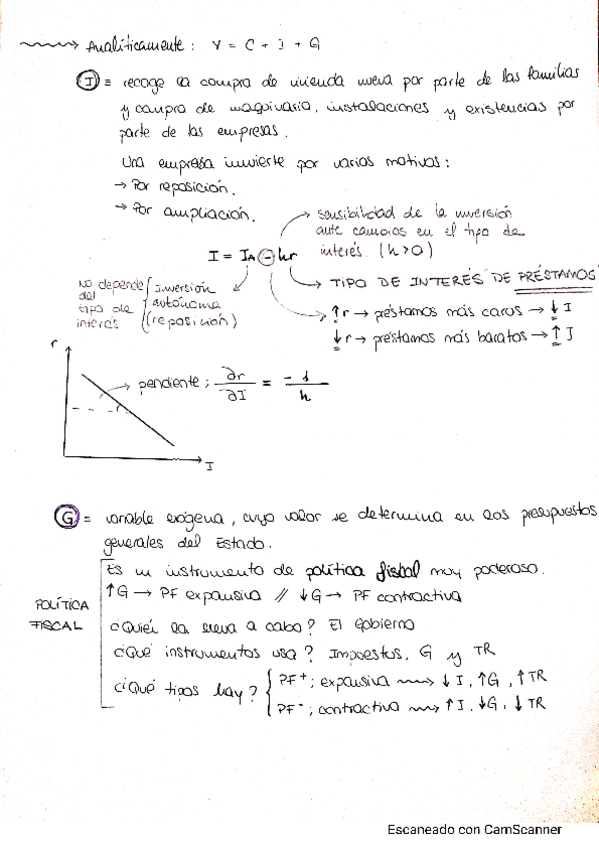 Analíticamente: Y = C + I + G
I = recoge la compra de vivienda nueva por parte de las familias
y compra de maquinaria, instalaciones y existencias por
parte de las empresas.
Una empresa invierte por varios motivos:
→ Por reposición.
→ Por ampliación.
sensibilidad de la inversión
ante cambios en el tipo de
interés. (h>0)
I = IA - hr
→ TIPO DE INTERÉS DE PRÉSTAMOS
No depende del tipo de interés
inversión autónoma (reposición)
↑r → préstamos más caros → ↓ I
↓r → préstamos más baratos → ↑ I
r
pendiente; ∂r/∂I = -1/h
I
G = variable exógena, cuyo valor se determina en los presupuestos
generales del Estado.
POLÍTICA FISCAL
Es un instrumento de política fiscal muy poderoso.
↑G → PF expansiva // ↓G → PF contractiva
¿Quién la lleva a cabo? El Gobierno
¿Qué instrumentos usa? Impuestos, G y TR
¿Qué tipos hay?
PF+; expansiva → ↓ I, ↑G, ↑TR
PF-; contractiva → ↑ I, ↓G, ↓ TR
Escaneado con CamScanner